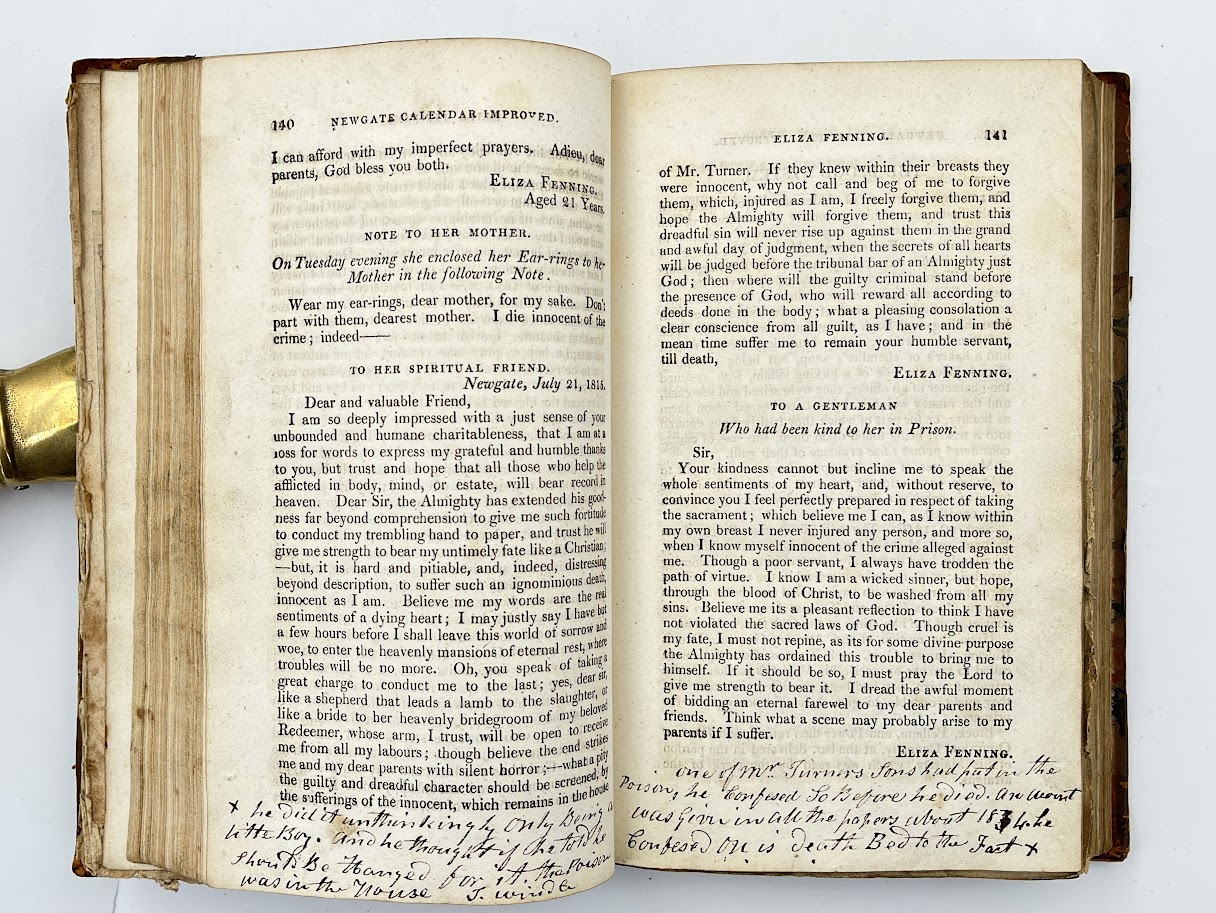 140 NEWGATE CALENDAR IMPROVED.
I can afford with my imperfect prayers. Adieu, dear
parents, God bless you both.
ELIZA FENNING.
Aged 21 Years.
NOTE TO HER MOTHER.
On Tuesday evening she enclosed her Ear-rings to her
Mother in the following Note.
Wear my ear-rings, dear mother, for my sake. Don't
part with them, dearest mother. I die innocent of the
crime; indeed——
TO HER SPIRITUAL FRIEND.
Newgate, July 21, 1815.
Dear and valuable Friend,
I am so deeply impressed with a just sense of your
unbounded and humane charitableness, that I am at a
loss for words to express my grateful and humble thanks
to you, but trust and hope that all those who help the
afflicted in body, mind, or estate, will bear record in
heaven. Dear Sir, the Almighty has extended his good-
ness far beyond comprehension to give me such fortitude
to conduct my trembling hand to paper, and trust he will
give me strength to bear my untimely fate like a Christian;
—but, it is hard and pitiable, and, indeed, distressing
beyond description, to suffer such an ignominious death,
innocent as I am. Believe me my words are the real
sentiments of a dying heart; I may justly say I have but
a few hours before I shall leave this world of sorrow and
woe, to enter the heavenly mansions of eternal rest, where
troubles will be no more. Oh, you speak of taking a
great charge to conduct me to the last; yes, dear sir,
like a shepherd that leads a lamb to the slaughter, or
like a bride to her heavenly bridegroom of my beloved
Redeemer, whose arm, I trust, will be open to receive
me from all my labours; though believe the end strikes
me and my dear parents with silent horror;—what a pity
the guilty and dreadful character should be screened, by
the sufferings of the innocent, which remains in the house
x he did it unthinkingly Only Being a
little Boy. And he thought if he told he
Should Be Hanged for it the Poison
was in the House J. Windle
ELIZA FENNING. 141
of Mr. Turner. If they knew within their breasts they
were innocent, why not call and beg of me to forgive
them, which, injured as I am, I freely forgive them, and
hope the Almighty will forgive them, and trust this
dreadful sin will never rise up against them in the grand
and awful day of judgment, when the secrets of all hearts
will be judged before the tribunal bar of an Almighty just
God; then where will the guilty criminal stand before
the presence of God, who will reward all according to
deeds done in the body; what a pleasing consolation a
clear conscience from all guilt, as I have; and in the
mean time suffer me to remain your humble servant,
till death,
ELIZA FENNING.
TO A GENTLEMAN
Who had been kind to her in Prison.
Sir,
Your kindness cannot but incline me to speak the
whole sentiments of my heart, and, without reserve, to
convince you I feel perfectly prepared in respect of taking
the sacrament; which believe me I can, as I know within
my own breast I never injured any person, and more so,
when I know myself innocent of the crime alleged against
me. Though a poor servant, I always have trodden the
path of virtue. I know I am a wicked sinner, but hope,
through the blood of Christ, to be washed from all my
sins. Believe me its a pleasant reflection to think I have
not violated the sacred laws of God. Though cruel is
my fate, I must not repine, as its for some divine purpose
the Almighty has ordained this trouble to bring me to
himself. If it should be so, I must pray the Lord to
give me strength to bear it. I dread the awful moment
of bidding an eternal farewel to my dear parents and
friends. Think what a scene may probably arise to my
parents if I suffer.
ELIZA FENNING.
one of Mr. Turners Sons had put in the
Poison, he Confesed So Before he died. An
was Given in all the papers about 1834. he
Confesed On is death Bed to the Fact x